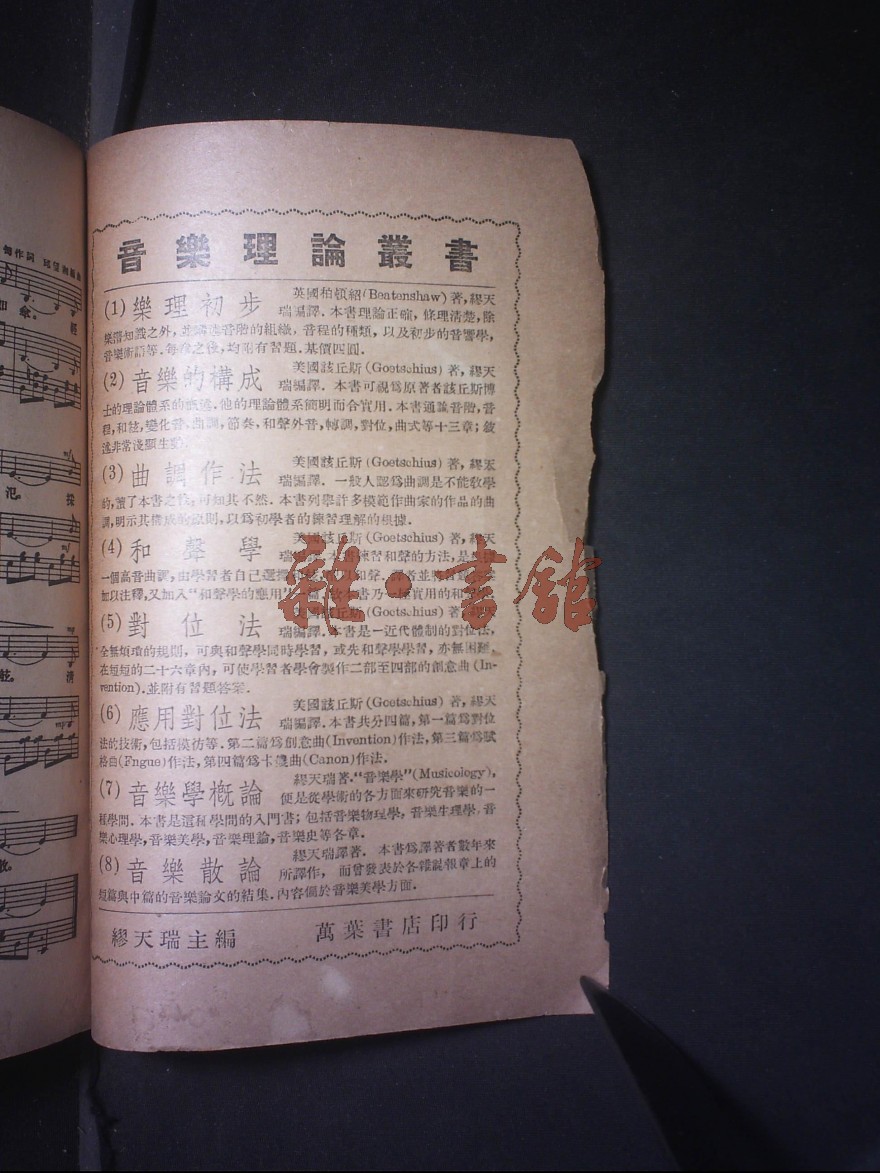 音樂理論叢書
(1) 樂理初步 英國柏頓紹(Beatenshaw)著,繆天
瑞編譯. 本書理論正確, 條理清楚, 除
樂譜知識之外, 並論述音階的組織, 音程的種類, 以及初步的音響學,
音樂術語等. 每章之後, 均附有習題. 基價四圓.
(2) 音樂的構成 美國該丘斯(Goetschius)著,繆天
瑞編譯. 本書可視爲原著者該丘斯博
士的理論體系的. 他的理論體系簡明而合實用. 本書通論音階, 音
程, 和絃, 變化音, 曲調, 節奏, 和聲外音, 轉調, 對位, 曲式等十三章; 敍
述非常淺顯生動.
(3) 曲調作法 美國該丘斯(Goetschius)著,繆天
瑞編譯. 一般人認爲曲調是不能敎學
的, 讀了本書之後, 可知其不然. 本書列舉許多模範作曲家的作品的曲
調, 明示其構成的原則, 以爲初學者的練習理解的根據.
(4) 和聲學 美國該丘斯(Goetschius)著,繆天
瑞 本書練習和聲的方法, 是
一個高音曲調, 由學習者自己選擇 以和聲. 譯者並
加以注釋, 又加入“和聲學的應用”一篇, 故本書乃一 實用的和聲
(5) 對位法 美國該丘斯(Goetschius)著,繆天
瑞編譯. 本書是一近代體制的對位法,
全無煩瑣的規則, 可與和聲學同時學習, 或先和聲學學習, 亦無困難.
在短短的二十六章內, 可使學習者學會製作二部至四部的創意曲(In-
vention). 並附有習題答案.
(6) 應用對位法 美國該丘斯(Goetschius)著,繆天
瑞編譯. 本書共分四篇, 第一篇爲對位
法的技術, 包括模仿等. 第二篇爲創意曲(Invention)作法, 第三篇爲賦
格曲(Fngue)作法, 第四篇爲卡農曲(Canon)作法.
(7) 音樂學概論 繆天瑞著. “音樂學”(Musicology),
便是從學術的各方面來研究音樂的一
種學問. 本書是這種學問的入門書; 包括音樂物理學, 音樂生理學, 音
樂心理學, 音樂美學, 音樂理論, 音樂史等各章.
(8) 音樂散論 繆天瑞譯著. 本書爲譯著者數年來
所譯作, 而曾發表於各雜誌報章上的
短篇與中篇的音樂論文的結集. 內容偏於音樂美學方面.
繆天瑞主編 萬葉書店印行
雜·書館